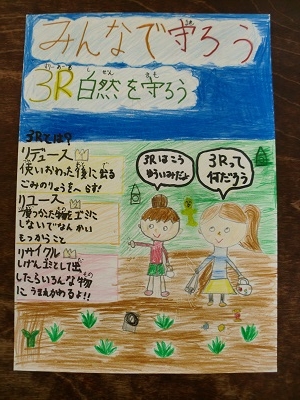 みんなで守ろう
3R自然を守ろう
3Rとは?
リデュース
使いおわった後に出る
ごみのりょうをへらす!
リユース
物をゴミに
しないでなんかい
もつかうこと
リサイクル
しげんゴミとして出
したらいろんな物
にうまえかわるよ!!
3Rはこう
ゆういみだよ
3Rって
何だろう